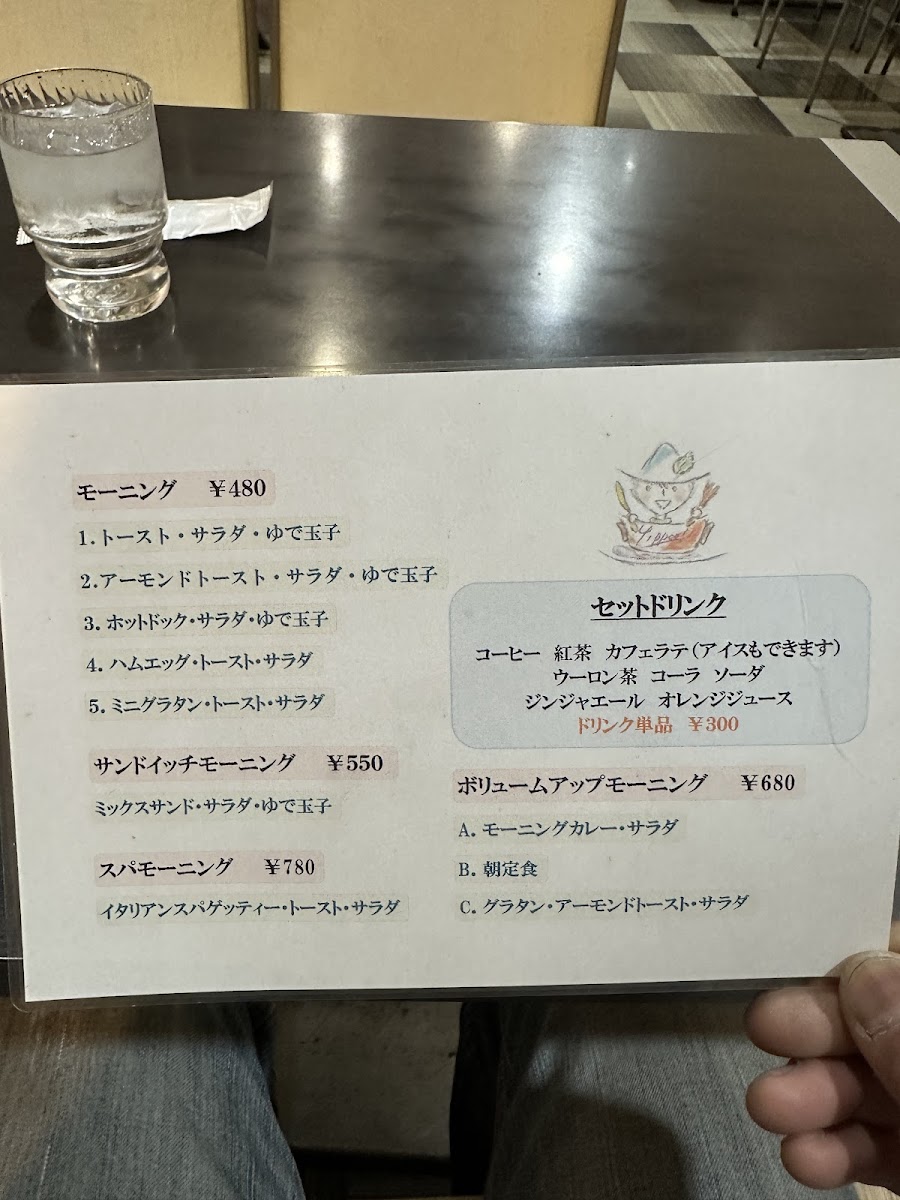 モーニング ￥480
1.トースト・サラダ・ゆで玉子
2.アーモンドトースト・サラダ・ゆで玉子
3.ホットドック・サラダ・ゆで玉子
4.ハムエッグ・トースト・サラダ
5.ミニグラタン・トースト・サラダ
サンドイッチモーニング ￥550
ミックスサンド・サラダ・ゆで玉子
スパモーニング ￥780
イタリアンスパゲッティー・トースト・サラダ
セットドリンク
コーヒー 紅茶 カフェラテ(アイスもできます)
ウーロン茶 コーラ ソーダ
ジンジャエール オレンジジュース
ドリンク単品 ￥300
ボリュームアップモーニング ￥680
A.モーニングカレー・サラダ
B.朝定食
C.グラタン・アーモンドトースト・サラダ